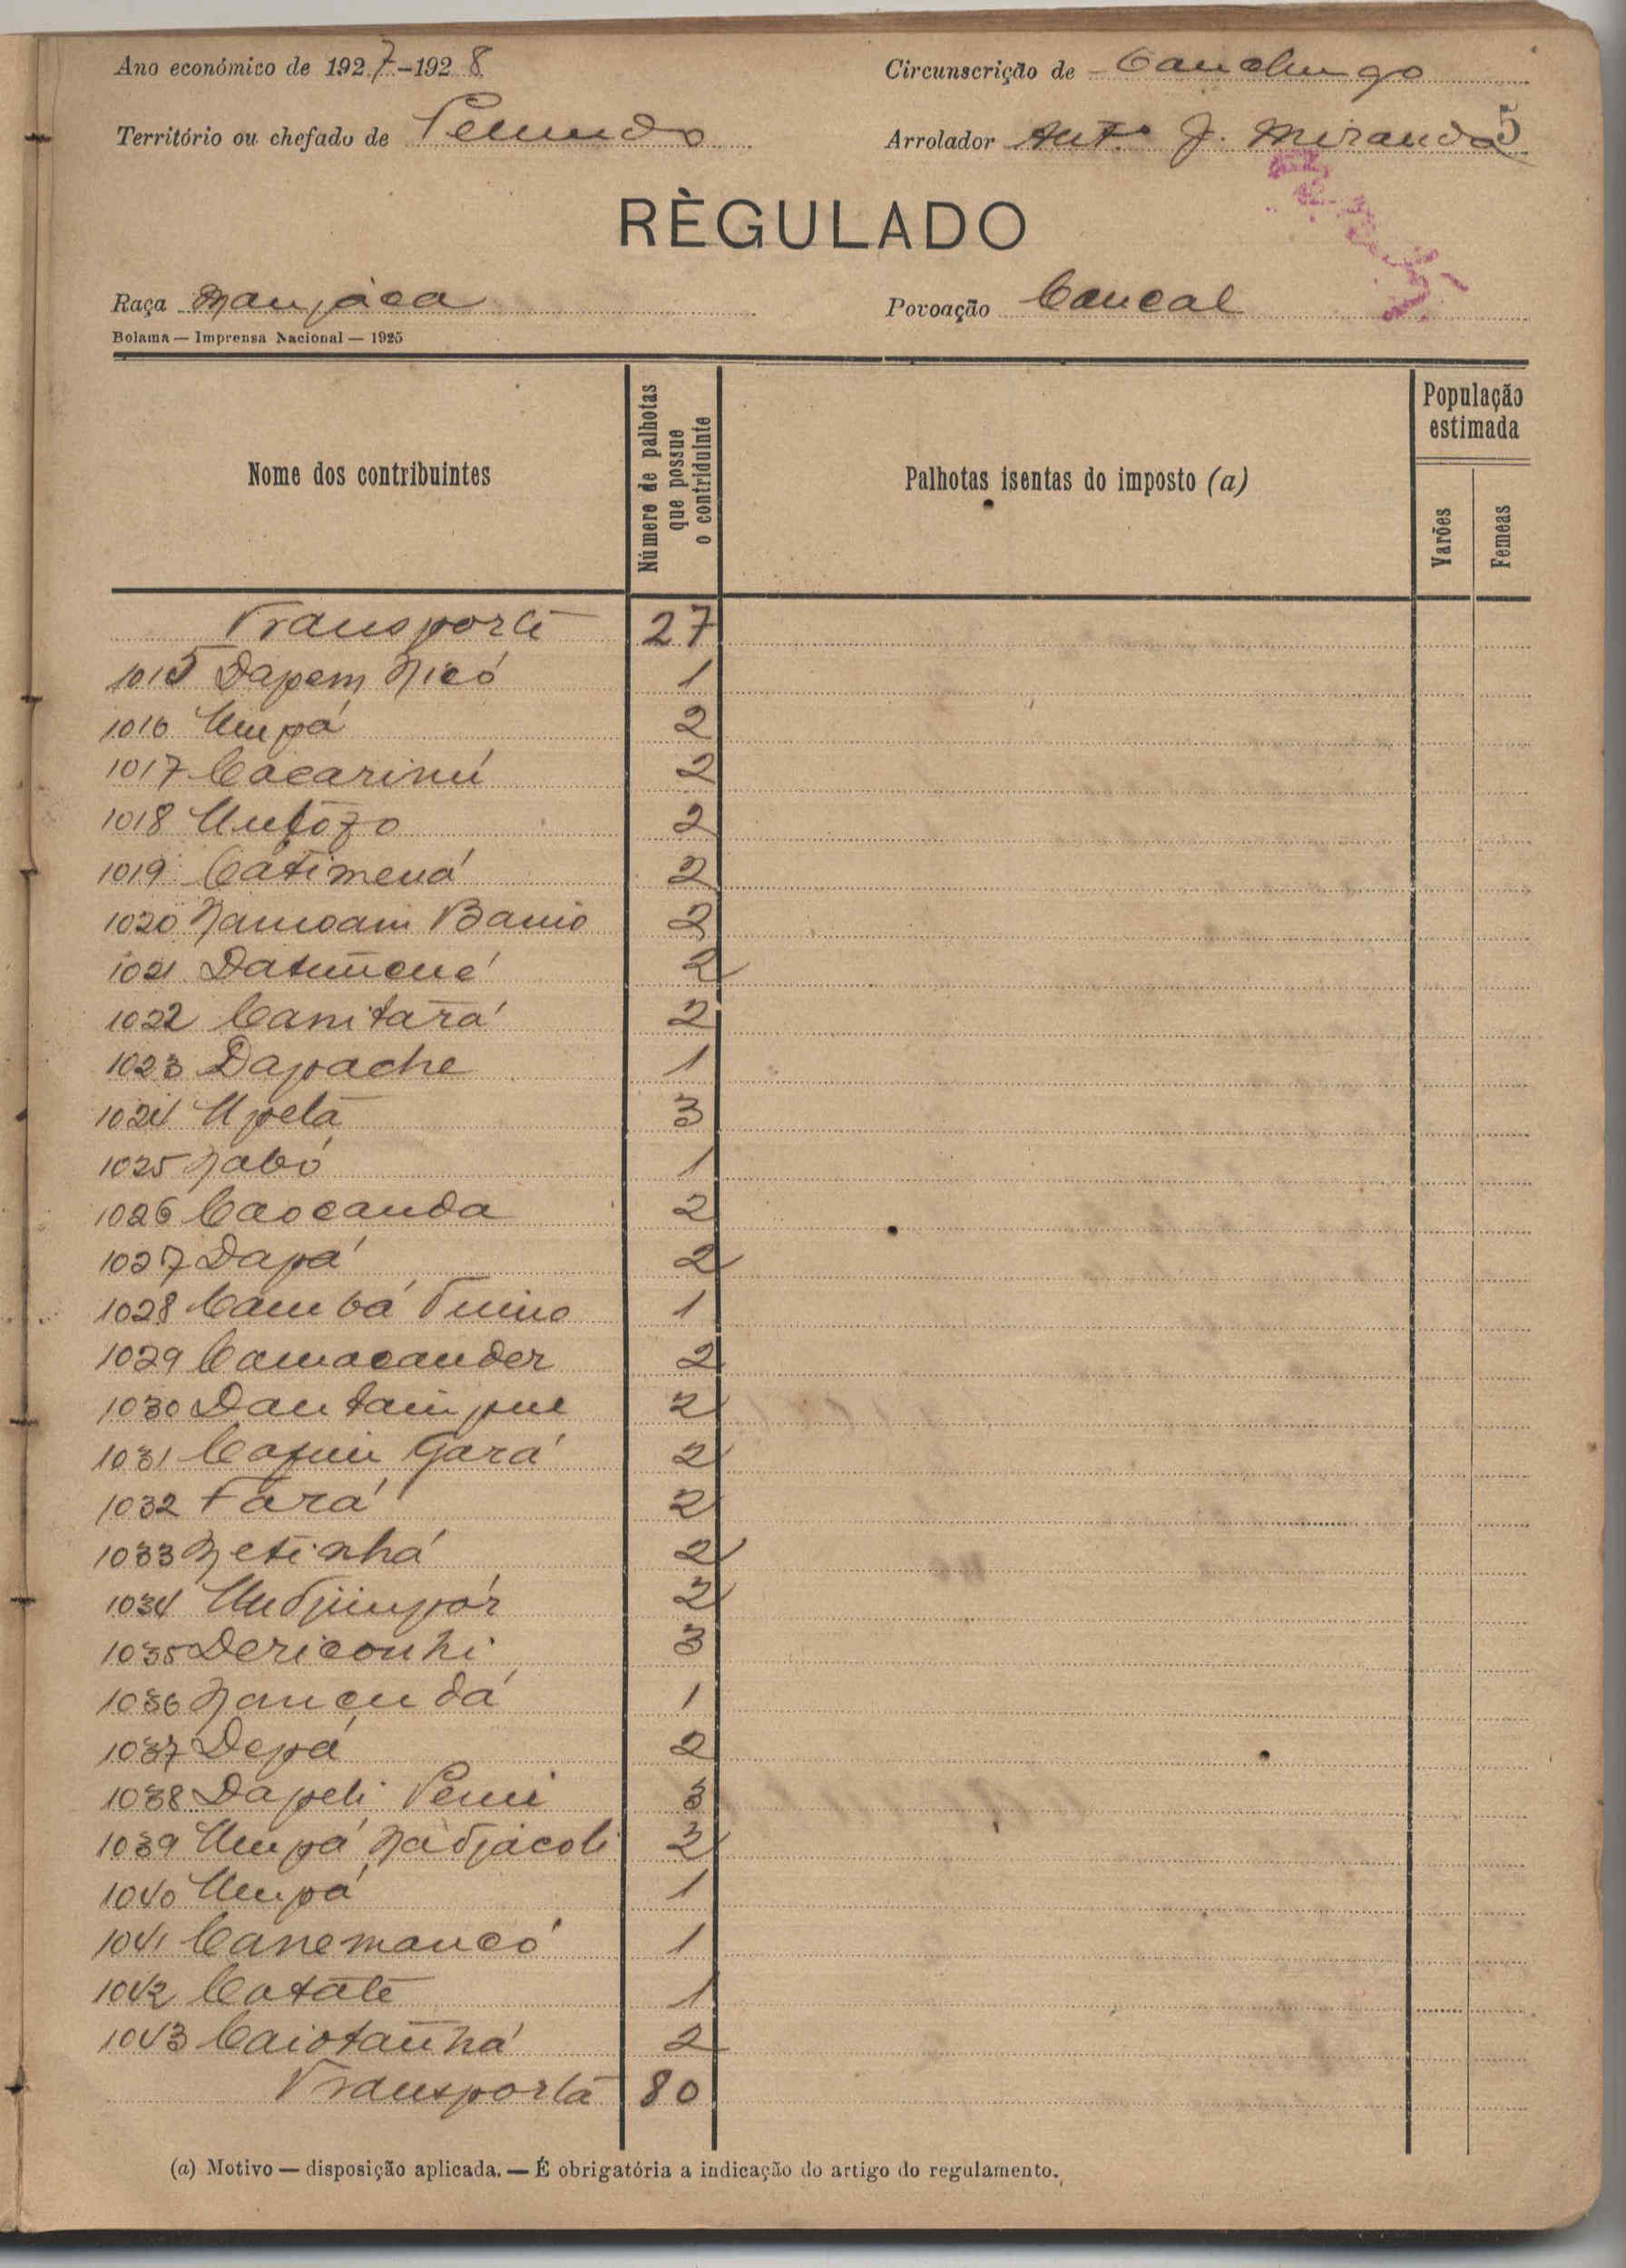 Ano económico de 1927-1928
Circunscrição de Canchungo
Território ou chefado de Pelundo
Arrolador Ant.º J. Miranda 5
RÈGULADO
Raça Manjaca
Povoação Caucal
Bolama — Imprensa Nacional — 1925
Nome dos contribuintes
Número de palhotas que possue o contriduinte
Palhotas isentas do imposto (a)
População estimada
Varões
Femeas
Transporte 27
1015 Dapem Nicó 1
1016 Umpá 2
1017 Cacarinú 2
1018 2
1019 Catimená 2
1020 2
1021 2
1022 Canitará 2
1023 Dapache 1
1024 Upetá 3
1025 Nabó 1
1026 Caocanda 2
1027 Dapá 2
1028 Cambá 1
1029 Camacander 2
1030 2
1031 Gará 2
1032 Fará 2
1033 Netinhá 2
1034 2
1035 3
1036 1
1037 Depá 2
1038 Dapeli 3
1039 Umpá Nadjácoli 2
1040 Umpá 1
1041 Canemancó 1
1042 Catate 1
1043 Caiotanhá 2
Transporta 80
(a) Motivo — disposição aplicada. — É obrigatória a indicação do artigo do regulamento.